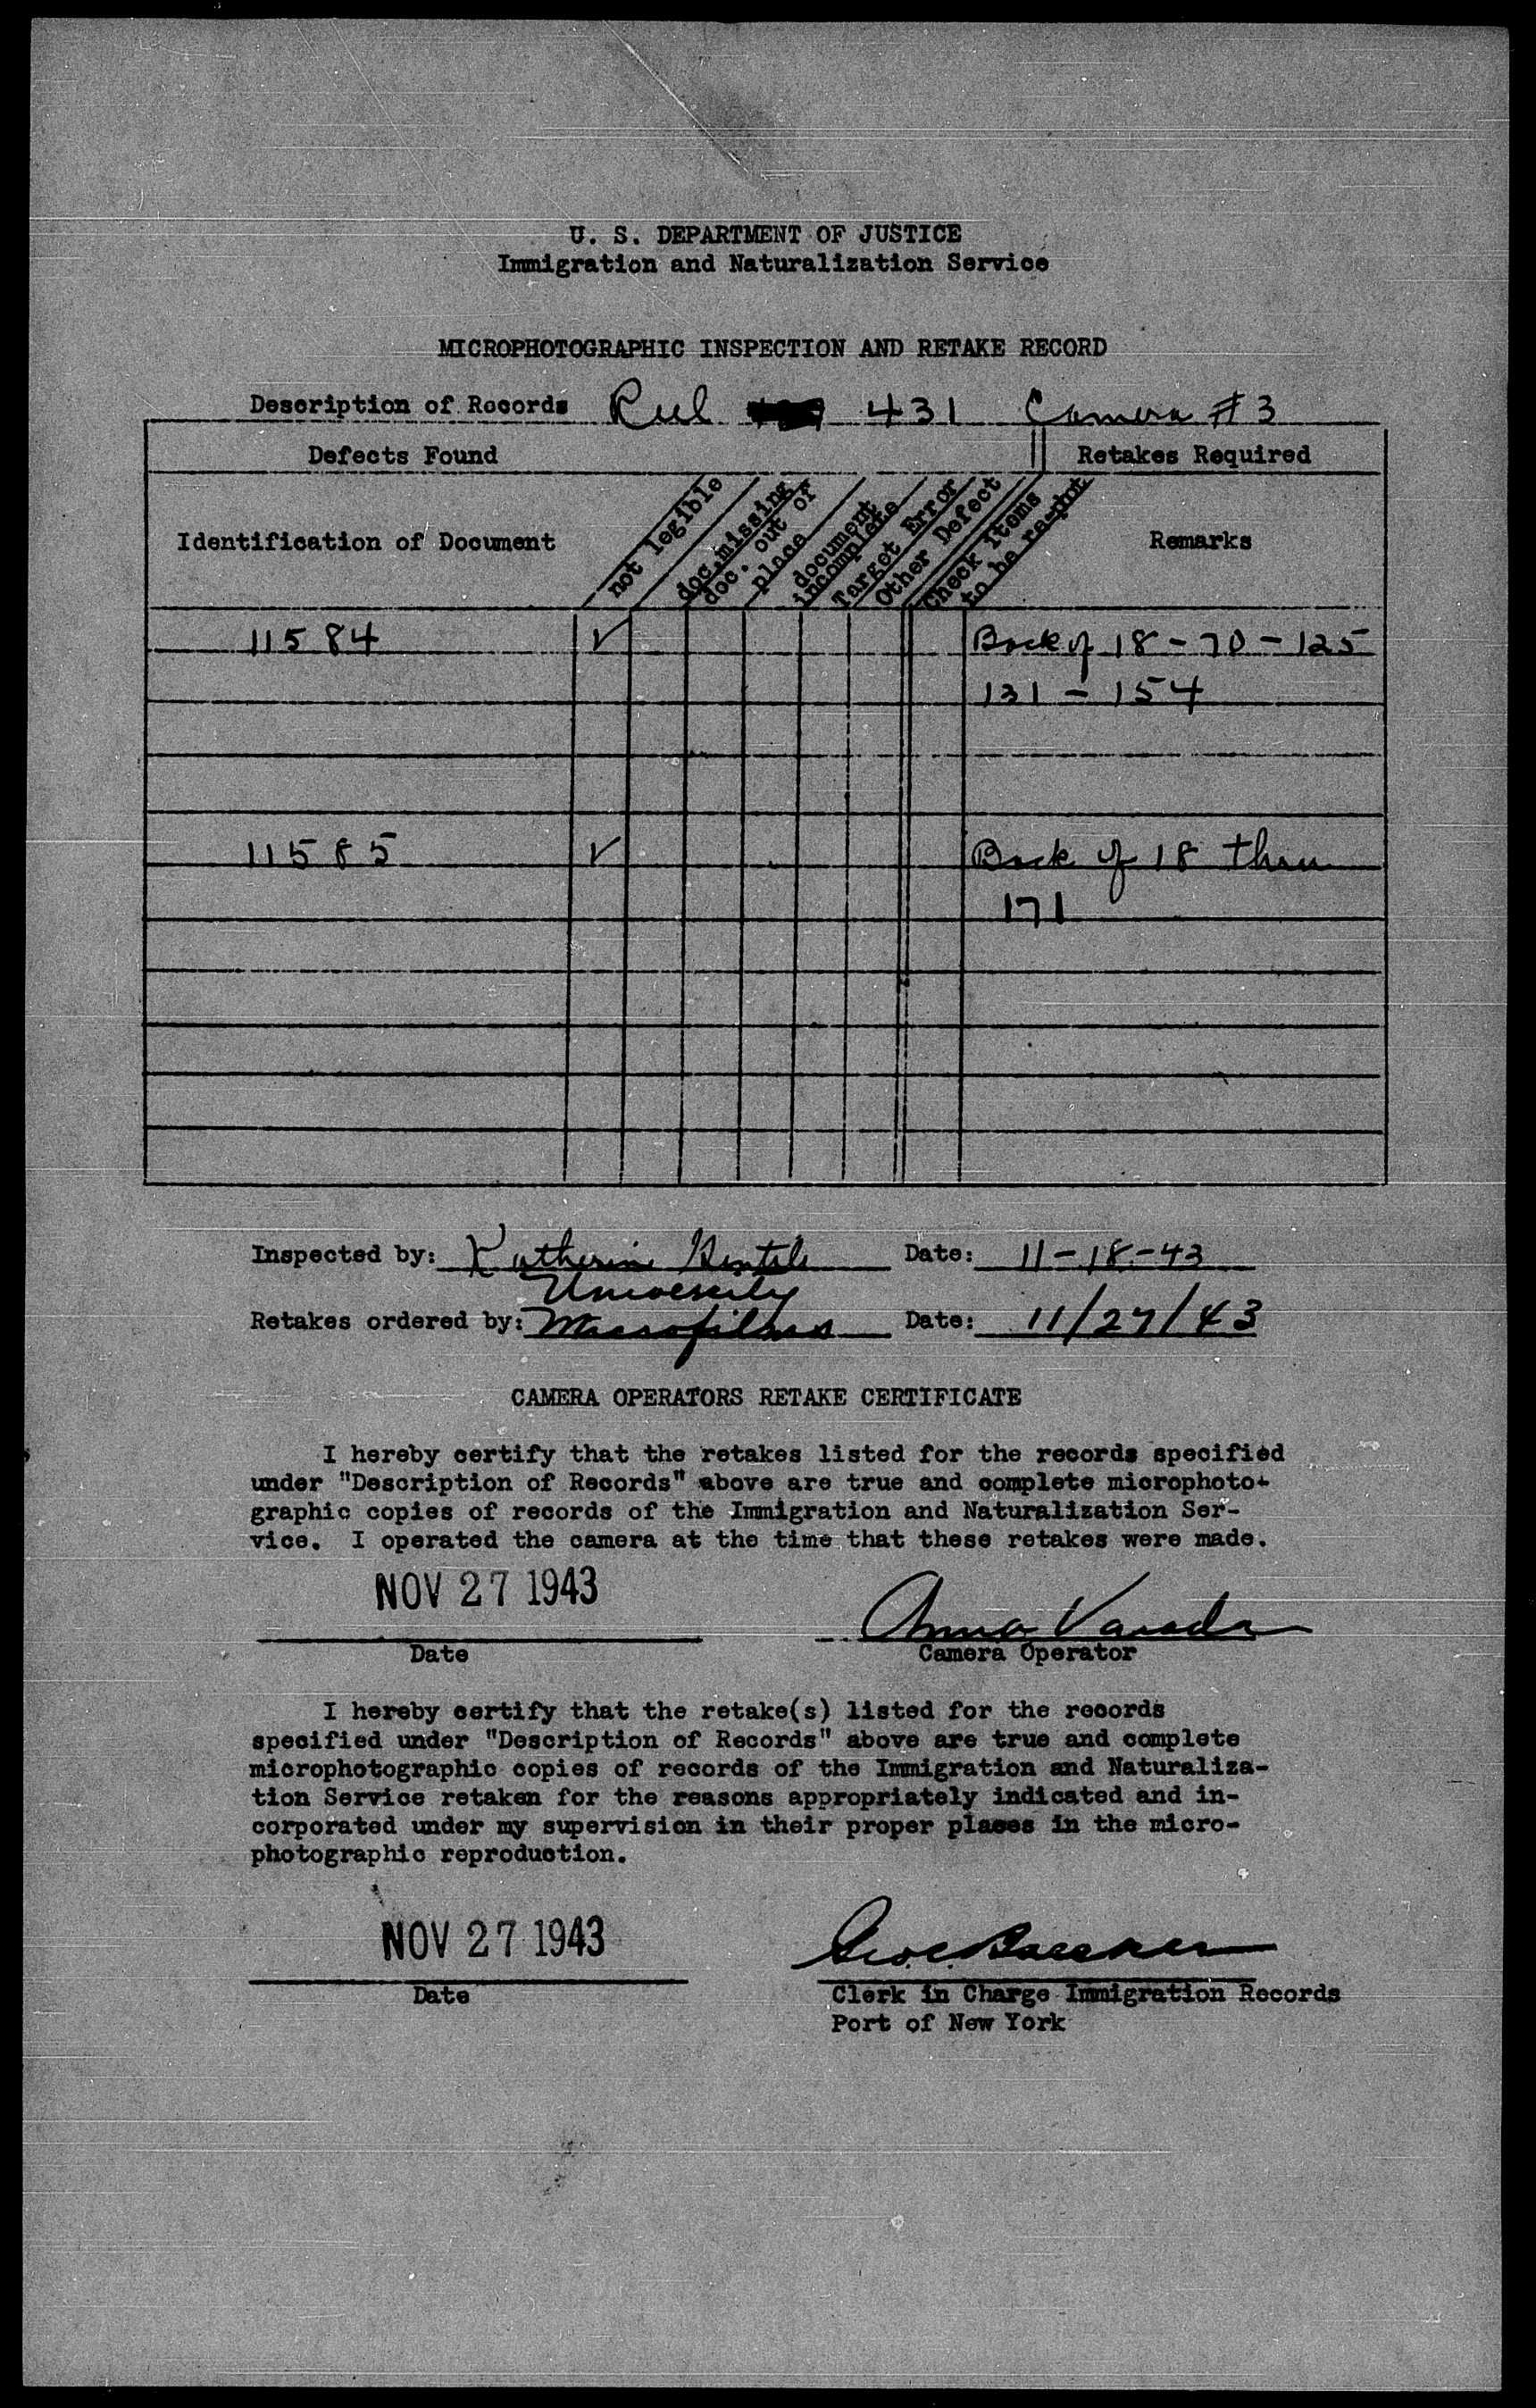 U. S. DEPARTMENT OF JUSTICE
Immigration and Naturalization Service
MICROPHOTOGRAPHIC INSPECTION AND RETAKE RECORD
Description of Records Reel 431 Camera #3
Defects Found Retakes Required
Identification of Document
not legible
doc. missing
doc. out of
place
document
incomplete
Target Error
Other Defect
Check items
to be re-pht
Remarks
11584 ✓ Back of 18 - 70 - 125
131 - 154
11585 ✓ Back of 18 thru
171
Inspected by: Katherine Date: 11-18-43
University
Retakes ordered by: Microfilms Date: 11/27/43
CAMERA OPERATORS RETAKE CERTIFICATE
I hereby certify that the retakes listed for the records specified
under "Description of Records" above are true and complete microphoto-
graphic copies of records of the Immigration and Naturalization Ser-
vice. I operated the camera at the time that these retakes were made.
NOV 27 1943
Anna
Date Camera Operator
I hereby certify that the retake(s) listed for the records
specified under "Description of Records" above are true and complete
microphotographic copies of records of the Immigration and Naturaliza-
tion Service retaken for the reasons appropriately indicated and in-
corporated under my supervision in their proper places in the micro-
photographic reproduction.
NOV 27 1943
Date Clerk in Charge Immigration Records
Port of New York